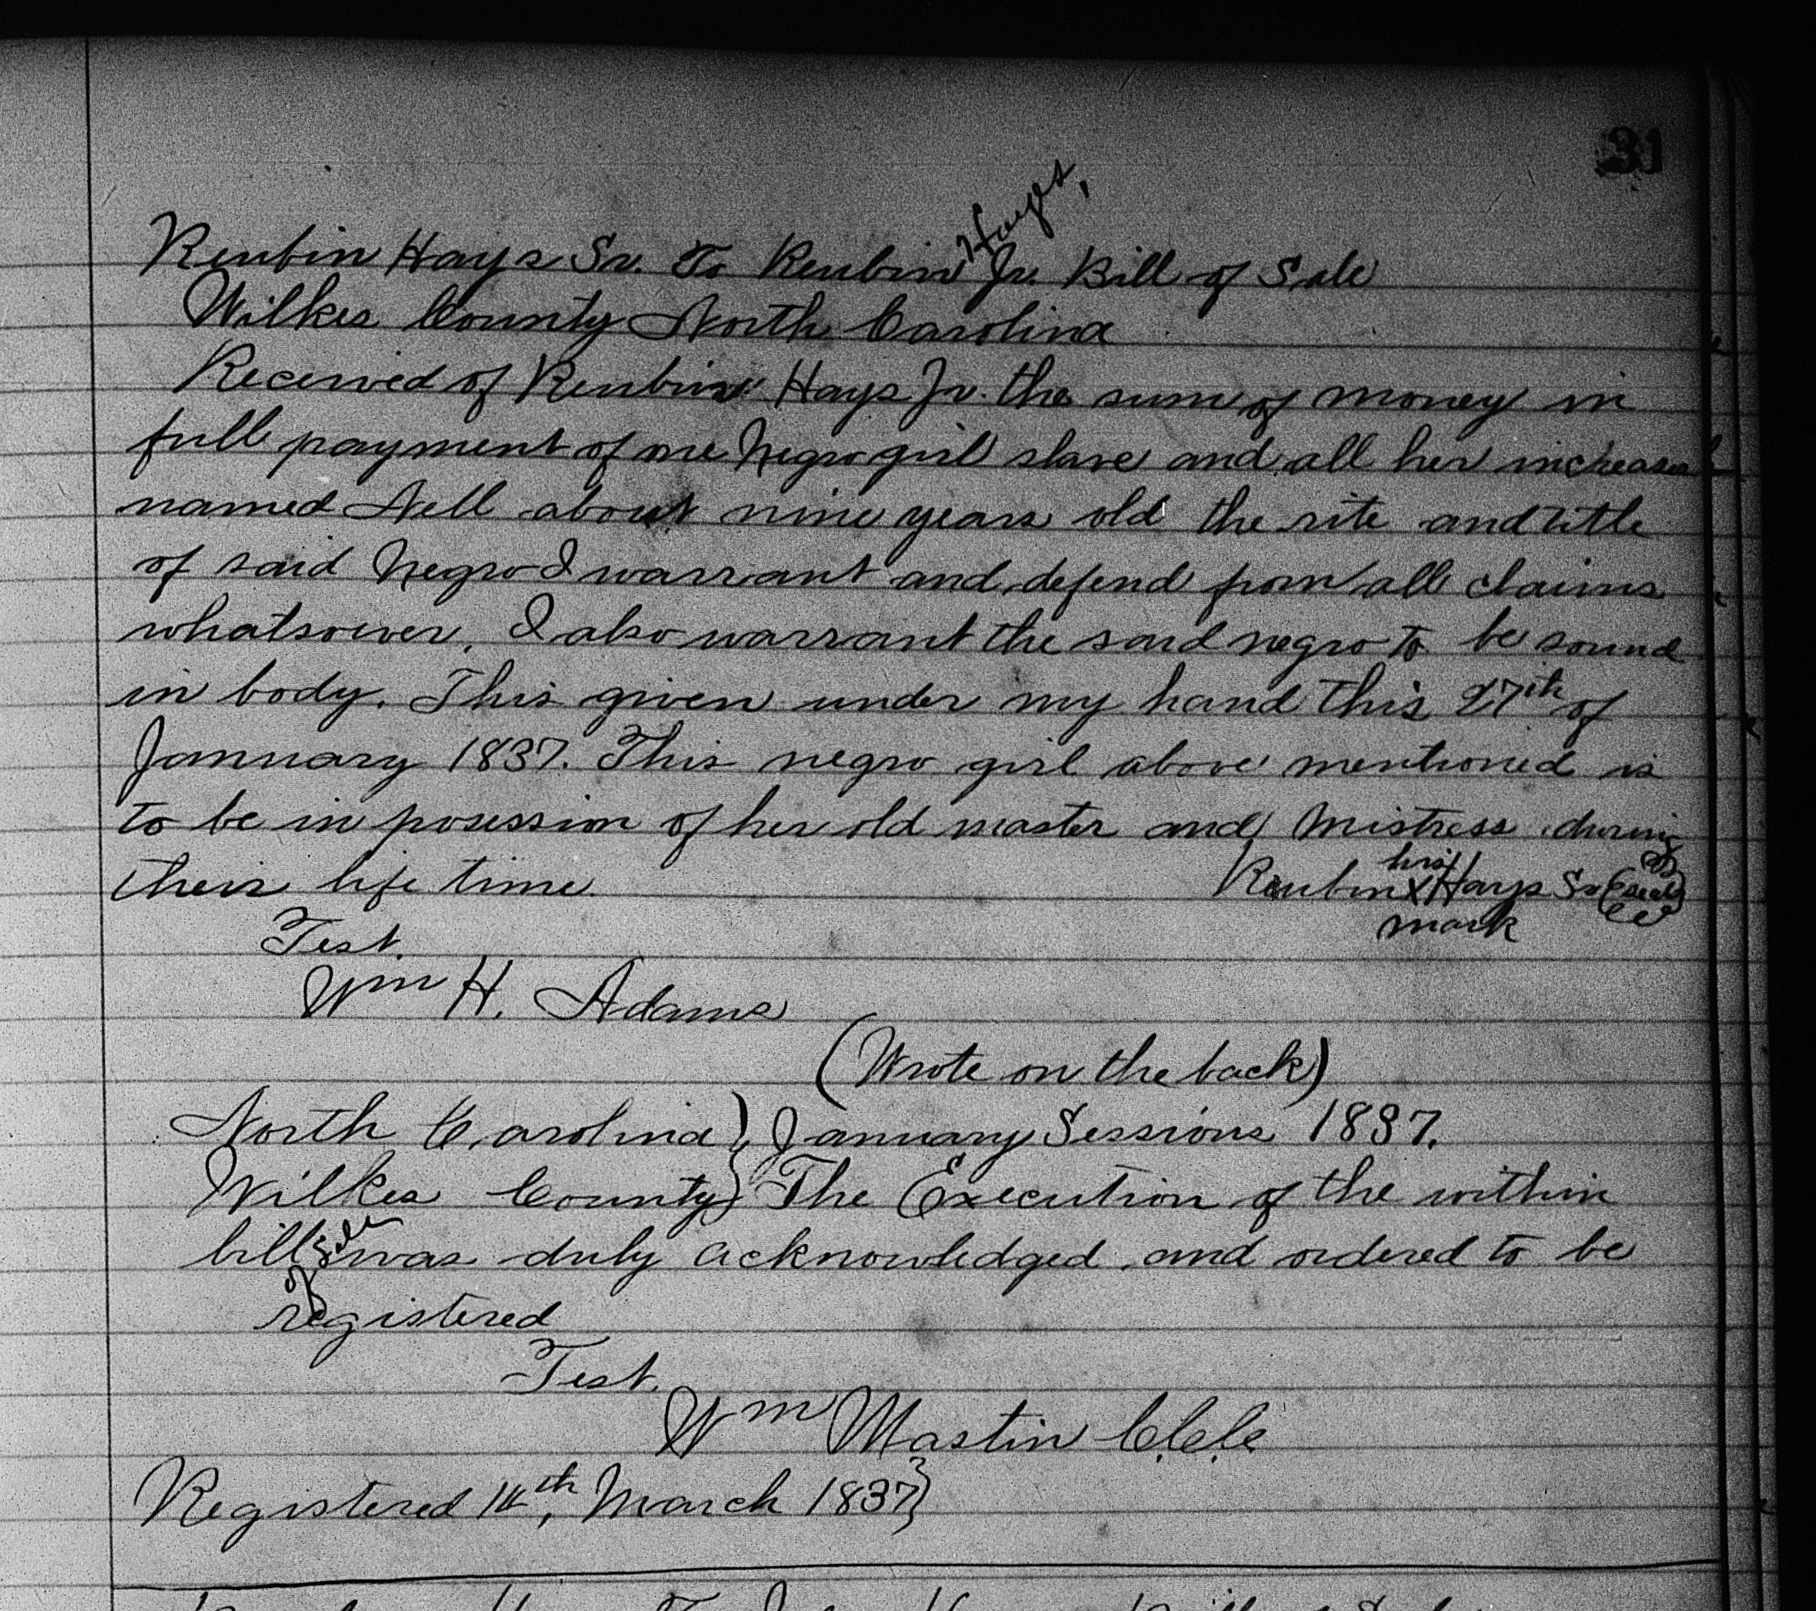 31
Reubin Hays Sr. To Reubin Hayes, Jr. Bill of Sale
Wilkes County North Carolina
Received of Reubin Hays Jr. the sum of money in
full payment of one Negro girl slave and all her increase
named Nell about nine years old the rite and title
of said Negro I warrant and defend from all claims
whatsoever, I also warrant the said negro to be sound
in body. This given under my hand this 27th of
January 1837. This negro girl above mentioned is
to be in posession of her old master and Mistress during
their life time.
Reubin his X mark Hays Sr (Seal)
Test.
Wm H. Adams
(Wrote on the back)
North Carolina } January Sessions 1837.
Wilkes County } The Execution of the within
bill of sale was duly acknowledged and ordered to be
registered
Test.
Wm Mastin C.C.C.
Registered , March 1837}